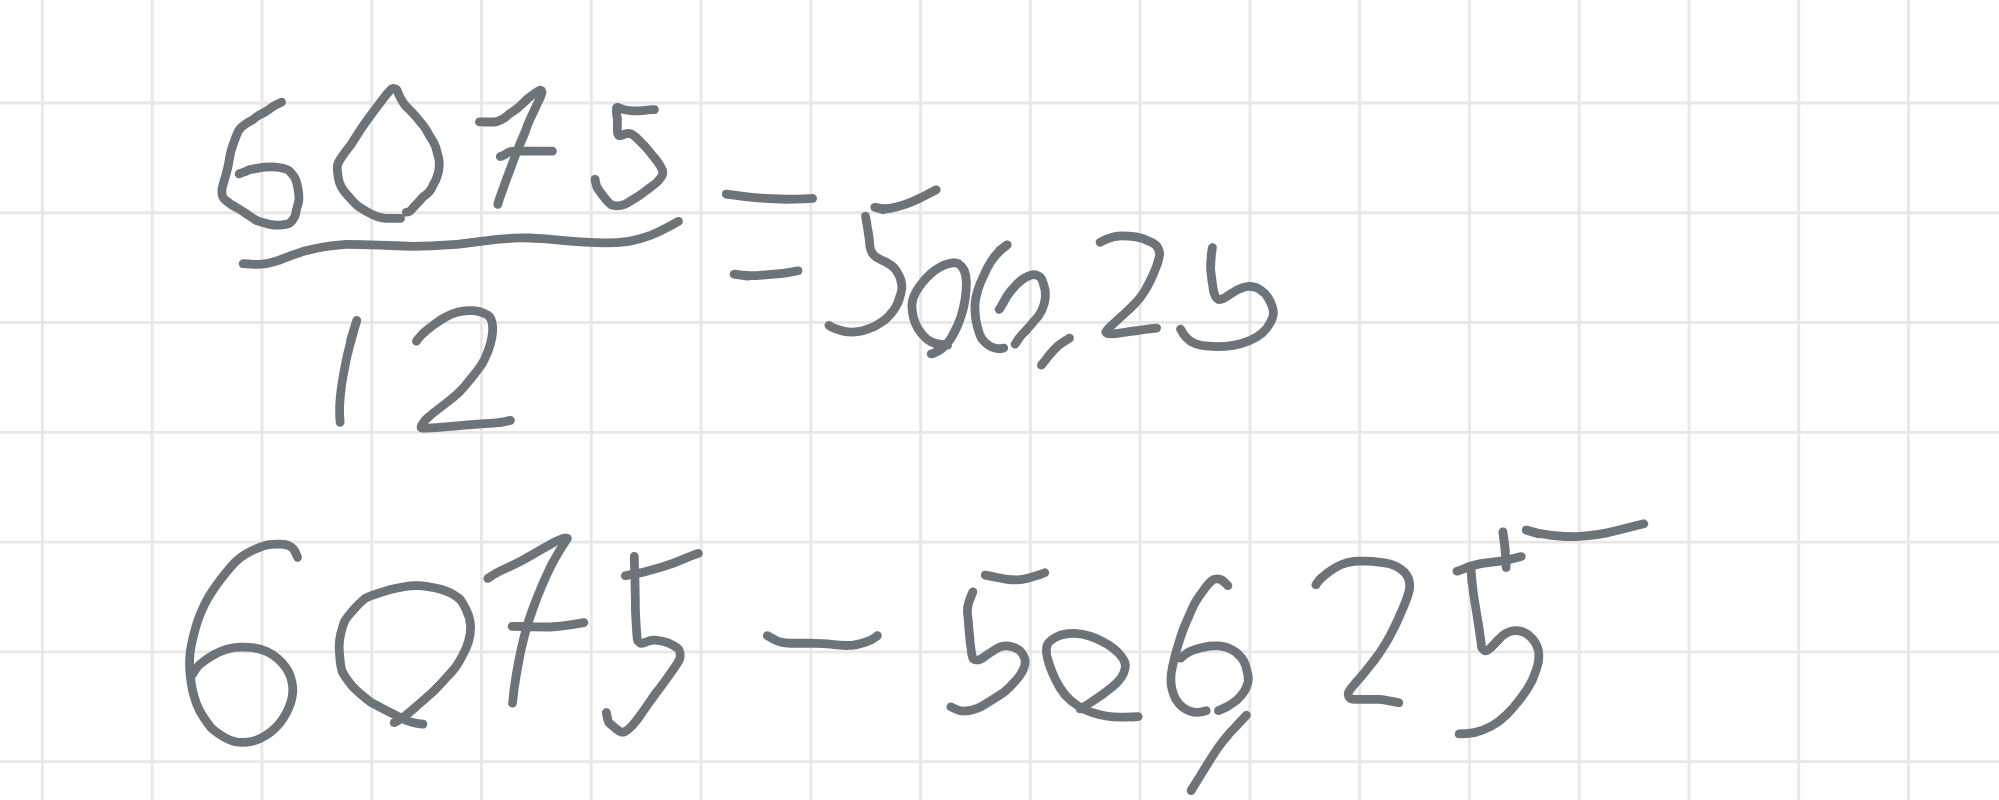 6075/12 = 506,25
6075 - 506,25